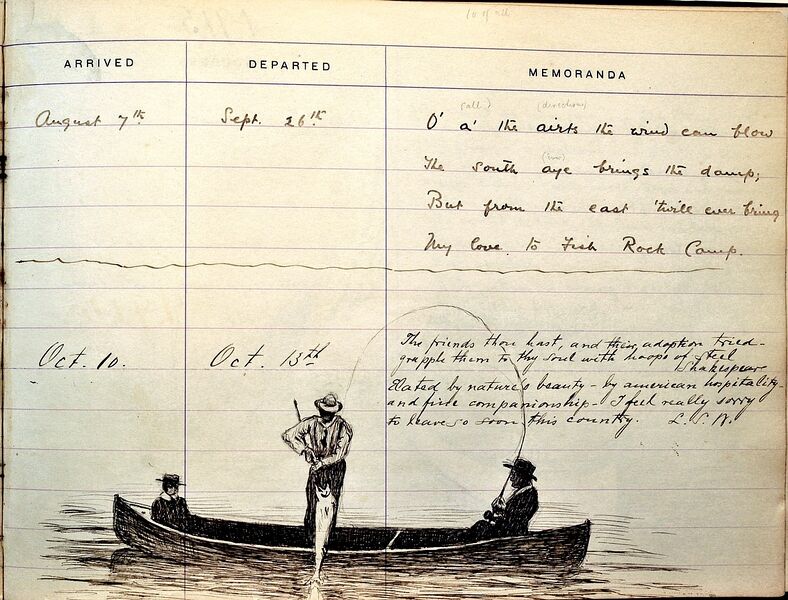 ARRIVED DEPARTED MEMORANDA
(all) (directions)
August 7th Sept. 26th O' a' the airts the wind can blow
The south aye brings the damp;
But from the east 'twill ever bring
My love to Fish Rock Camp.
Oct. 10. Oct. 13th The friends thou hast, and their adoption tried-
grapple them to thy soul with hoops of steel
Shakespear
Elated by nature's beauty - by american hospitality -
and fine companionship - I feel really sorry
to leave so soon this country.